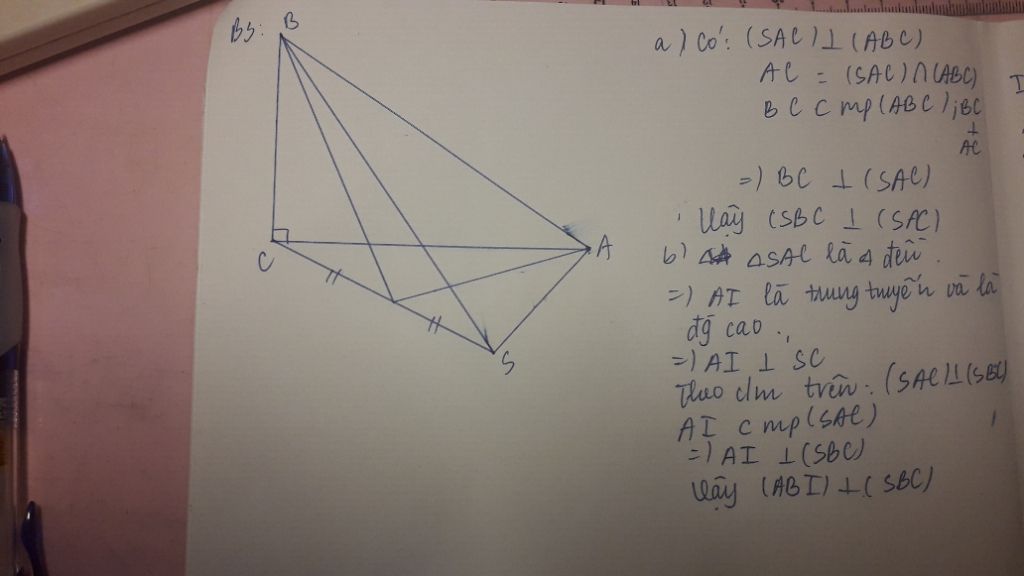 B3:
B
C
A
S
a) Có: (SAC) ⊥ (ABC)
AC = (SAC) ∩ (ABC)
BC ⊂ mp(ABC); BC
⊥
AC
=) BC ⊥ (SAC)
Vậy (SBC ⊥ (SAC)
b) △SAC là △ đều.
=) AI là trung tuyến và là
đg cao.
=) AI ⊥ SC
Theo cm trên: (SAC)⊥(SBC)
AI ⊂ mp(SAC)
=) AI ⊥ (SBC)
Vậy (ABI) ⊥ (SBC)